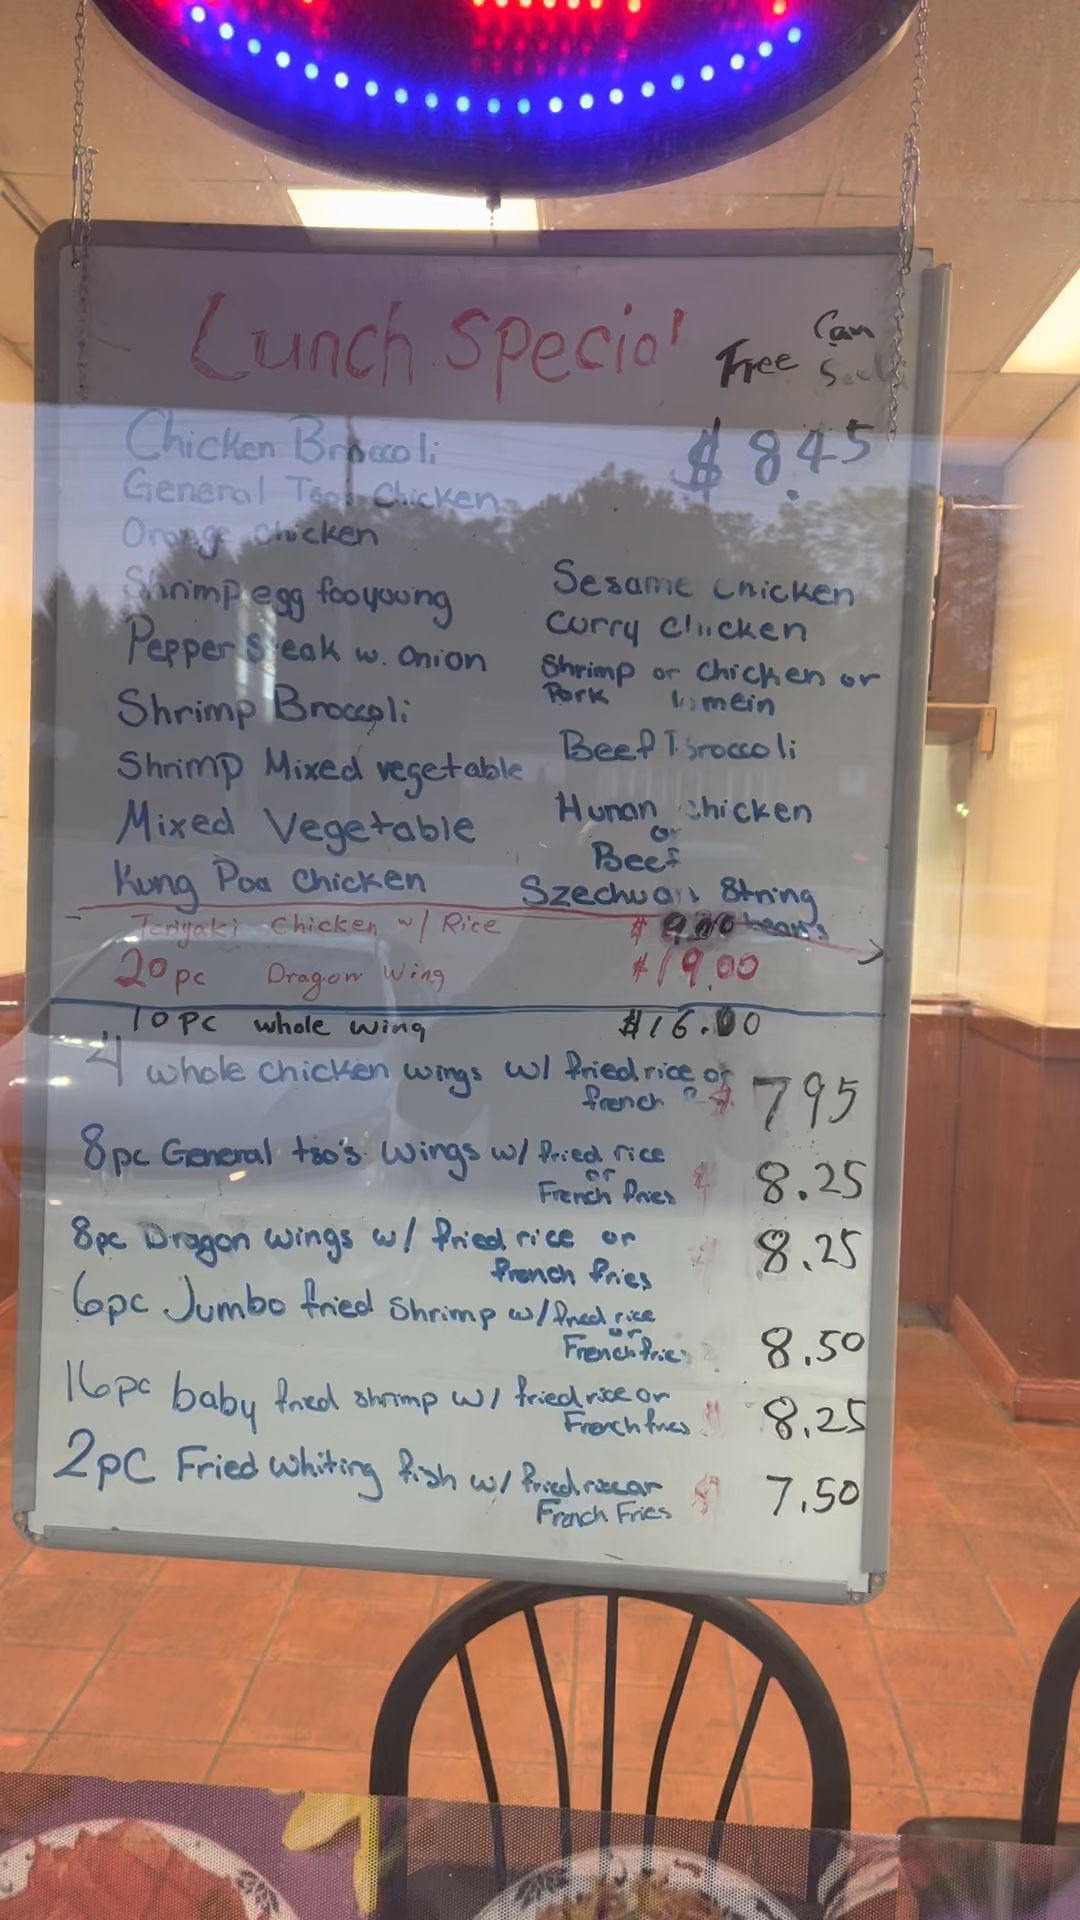 Lunch Special
Free Can
$8.45
Chicken Broccoli
General Tso's Chicken
Orange Chicken
Shrimp egg fooyoung
Pepper Steak w. onion
Shrimp Broccoli
Shrimp Mixed vegetable
Mixed Vegetable
Kung Poa Chicken
Sesame Chicken
Curry Chicken
Shrimp or Chicken or
Pork lomein
Beef Broccoli
Hunan chicken
or
Beef
Szechuan String
beans
Teriyaki Chicken w/ Rice $
20pc Dragon Wing $19.00
10 PC whole wing $16.00
4 whole chicken wings w/ fried rice or
french $ 795
8pc General tso's Wings w/ fried rice
or
French fries $ 8.25
8pc Dragon wings w/ fried rice or
french fries $ 8.25
6pc Jumbo fried Shrimp w/ fried rice
or
French fries 8.50
16pc baby fried shrimp w/ fried rice or
French fries $ 8.25
2pc Fried Whiting fish w/ fried rice or
French Fries $ 7.50